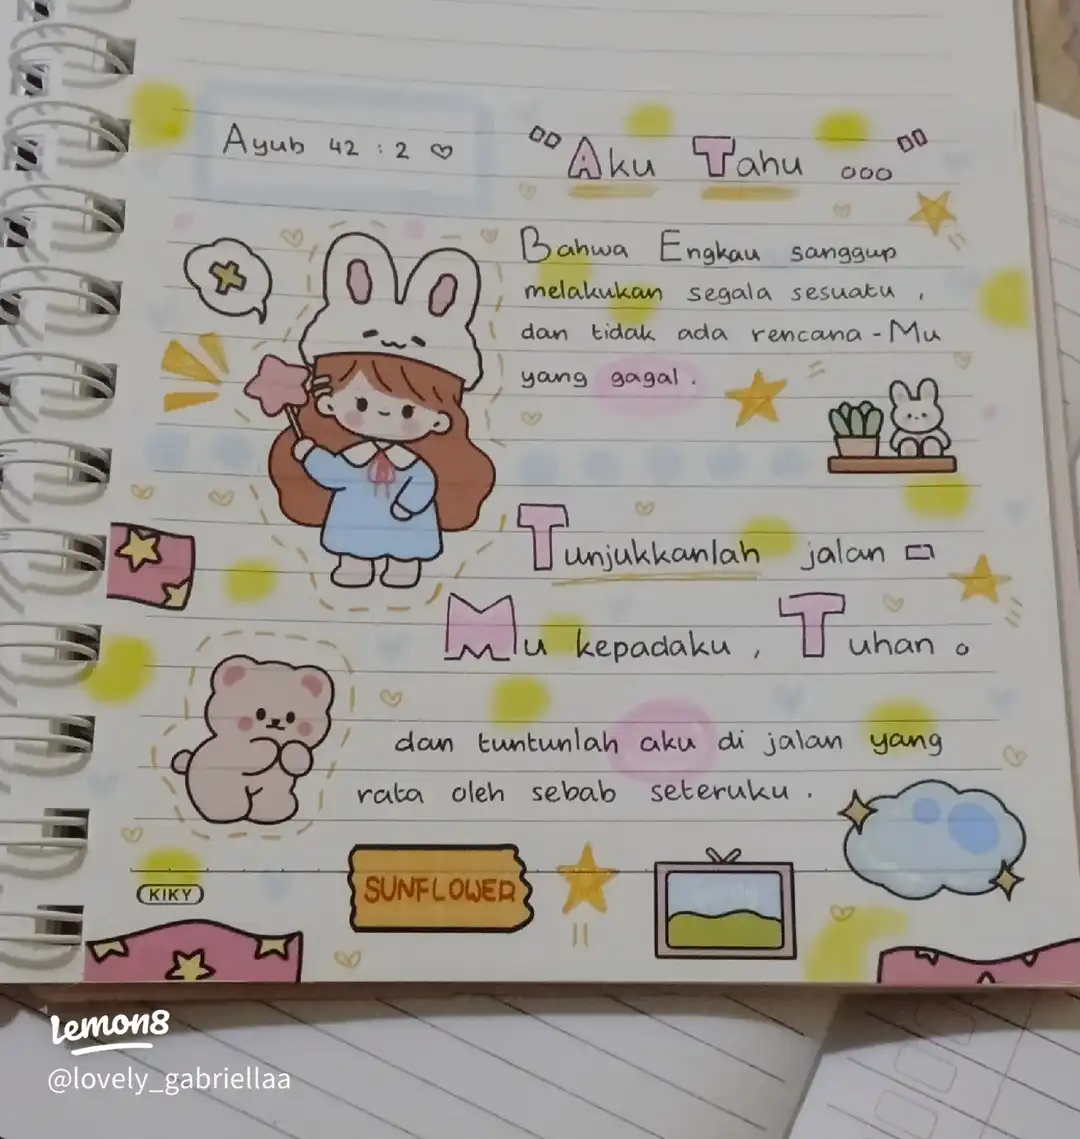 Ayub 42 : 2 ♡
"Aku Tahu ..."
Bahwa Engkau sanggup
melakukan segala sesuatu ,
dan tidak ada rencana - Mu
yang gagal .
Tunjukkanlah jalan -
Mu kepadaku , Tuhan .
dan tuntunlah aku di jalan yang
rata oleh sebab seteruku .
SUNFLOWER
KIKY
Lemon8
@lovely_gabriellaa